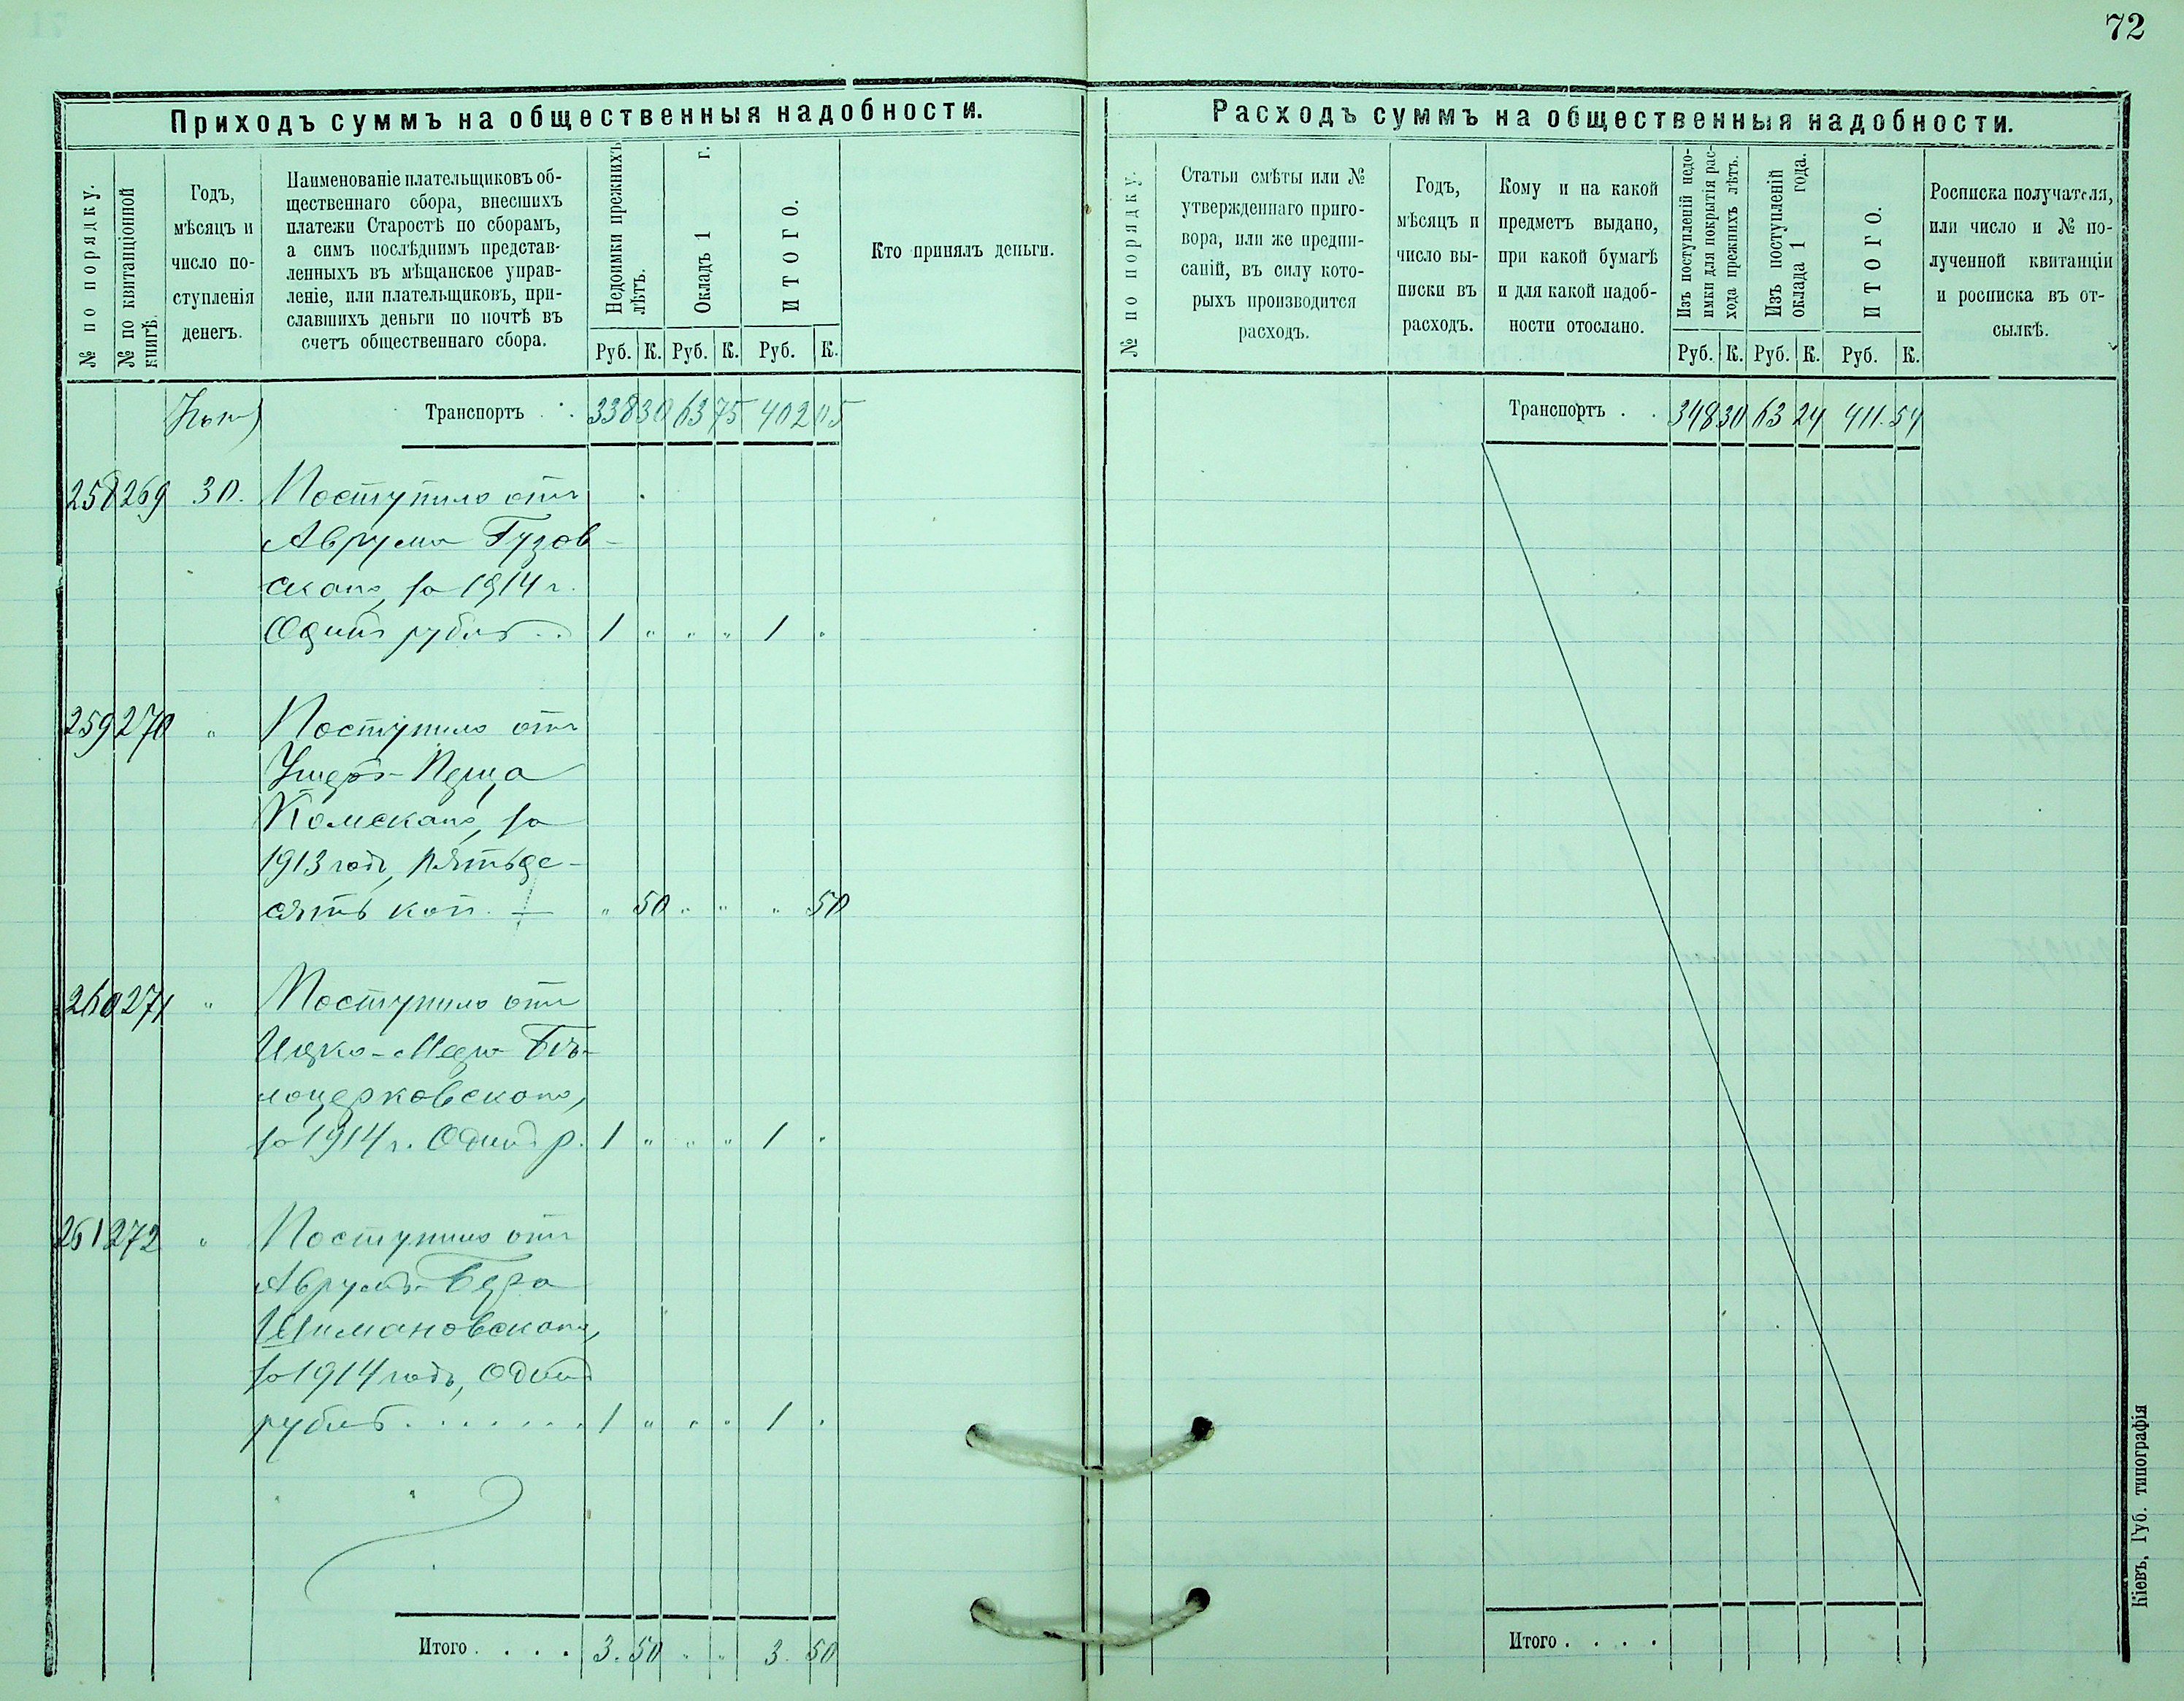 72
Приходъ суммъ на общественныя надобности.
№ по порядку.
№ по квитанціонной
книгѣ.
Годъ,
мѣсяцъ и
число по-
ступленія
денегъ.
Наименованіе плательщиковъ об-
щественнаго сбора, внесшихъ
платежи Старостѣ по сборамъ,
а симъ послѣднимъ представ-
ленныхъ въ мѣщанское управ-
леніе, или плательщиковъ, при-
славшихъ деньги по почтѣ въ
счетъ общественнаго сбора.
Недоимки прежнихъ
лѣтъ.
Окладъ 1 г.
ИТОГО.
Руб. К. Руб. К. Руб. К.
Кто принялъ деньги.
Транспортъ . . 338 30 63 75 402 05
258 269 30. Поступило отъ
Аврума Гузов-
скаго, за 1914 г.
Одинъ рубль . . 1 " " " 1 "
259 270 " Поступило отъ
Ушеръ-
Комскаго, за
1913 годъ, пятьде-
сятъ коп. — " 50 " " " 50
260 271 " Поступило отъ
Ицко- Бѣ-
лоцерковскаго,
за 1914 г. Одинъ р. 1 " " " 1 "
261 272 " Поступило отъ
Аврумъ-Бера
Шимановскаго,
за 1914 годъ, Одинъ
рубль . . . . . . 1 " " " 1 "
Итого . . . . 3. 50 " " 3. 50
Расходъ суммъ на общественныя надобности.
№ по порядку.
Статьи смѣты или №
утвержденнаго приго-
вора, или же предпи-
саній, въ силу кото-
рыхъ производится
расходъ.
Годъ,
мѣсяцъ и
число вы-
писки въ
расходъ.
Кому и на какой
предметъ выдано,
при какой бумагѣ
и для какой надоб-
ности отослано.
Изъ поступленій недо-
имки для покрытія рас-
хода прежнихъ лѣтъ.
Изъ поступленій
оклада 1 года.
ИТОГО.
Руб. К. Руб. К. Руб. К.
Росписка получателя,
или число и № по-
лученной квитанціи
и росписка въ от-
сылкѣ.
Транспортъ . . 348 30 63 24 411. 54
Итого . . . .
Кіевъ, Губ. типографія